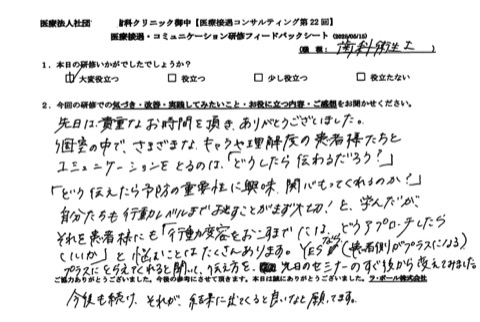 医療法人社団 歯科クリニック御中【医療接遇コンサルティング第22回】
医療接遇・コミュニケーション研修フィードバックシート (2025/05/15)
(職種: 歯科衛生士
1.本日の研修いかがでしたでしょうか?
大変役立つ 役立つ 少し役立つ 役立たない
2.今回の研修での気づき・改善・実践してみたいこと・お役に立つ内容・ご感想をお聞かせください。
先日は貴重なお時間を頂き、ありがとうございました。
個室の中で、さまざまなキャラや理解度の患者様たちと
コミュニケーションをとるのは、「どうしたら伝わるだろう?」
「どう伝えたら予防の重要性に興味、関心もってくれるのか?」
自分たちも行動レベルまで おとすことがまず大切!と、学んだが
それを患者様にも「行動変容をおこすまでには、どうアプローチしたら
いいか」と 悩むことはたくさんあります。YESなら(患者側がプラスになる)
プラスにとらえてくれると聞いて、伝え方を、先日のセミナーのすぐ後から変えてみました
ご協力ありがとうございました。今後の参考にさせて頂きます。本日は誠にありがとうございました。ラ・ポール株式会社
今後も続け、それが、結果に出てくると良いなと願ってます。